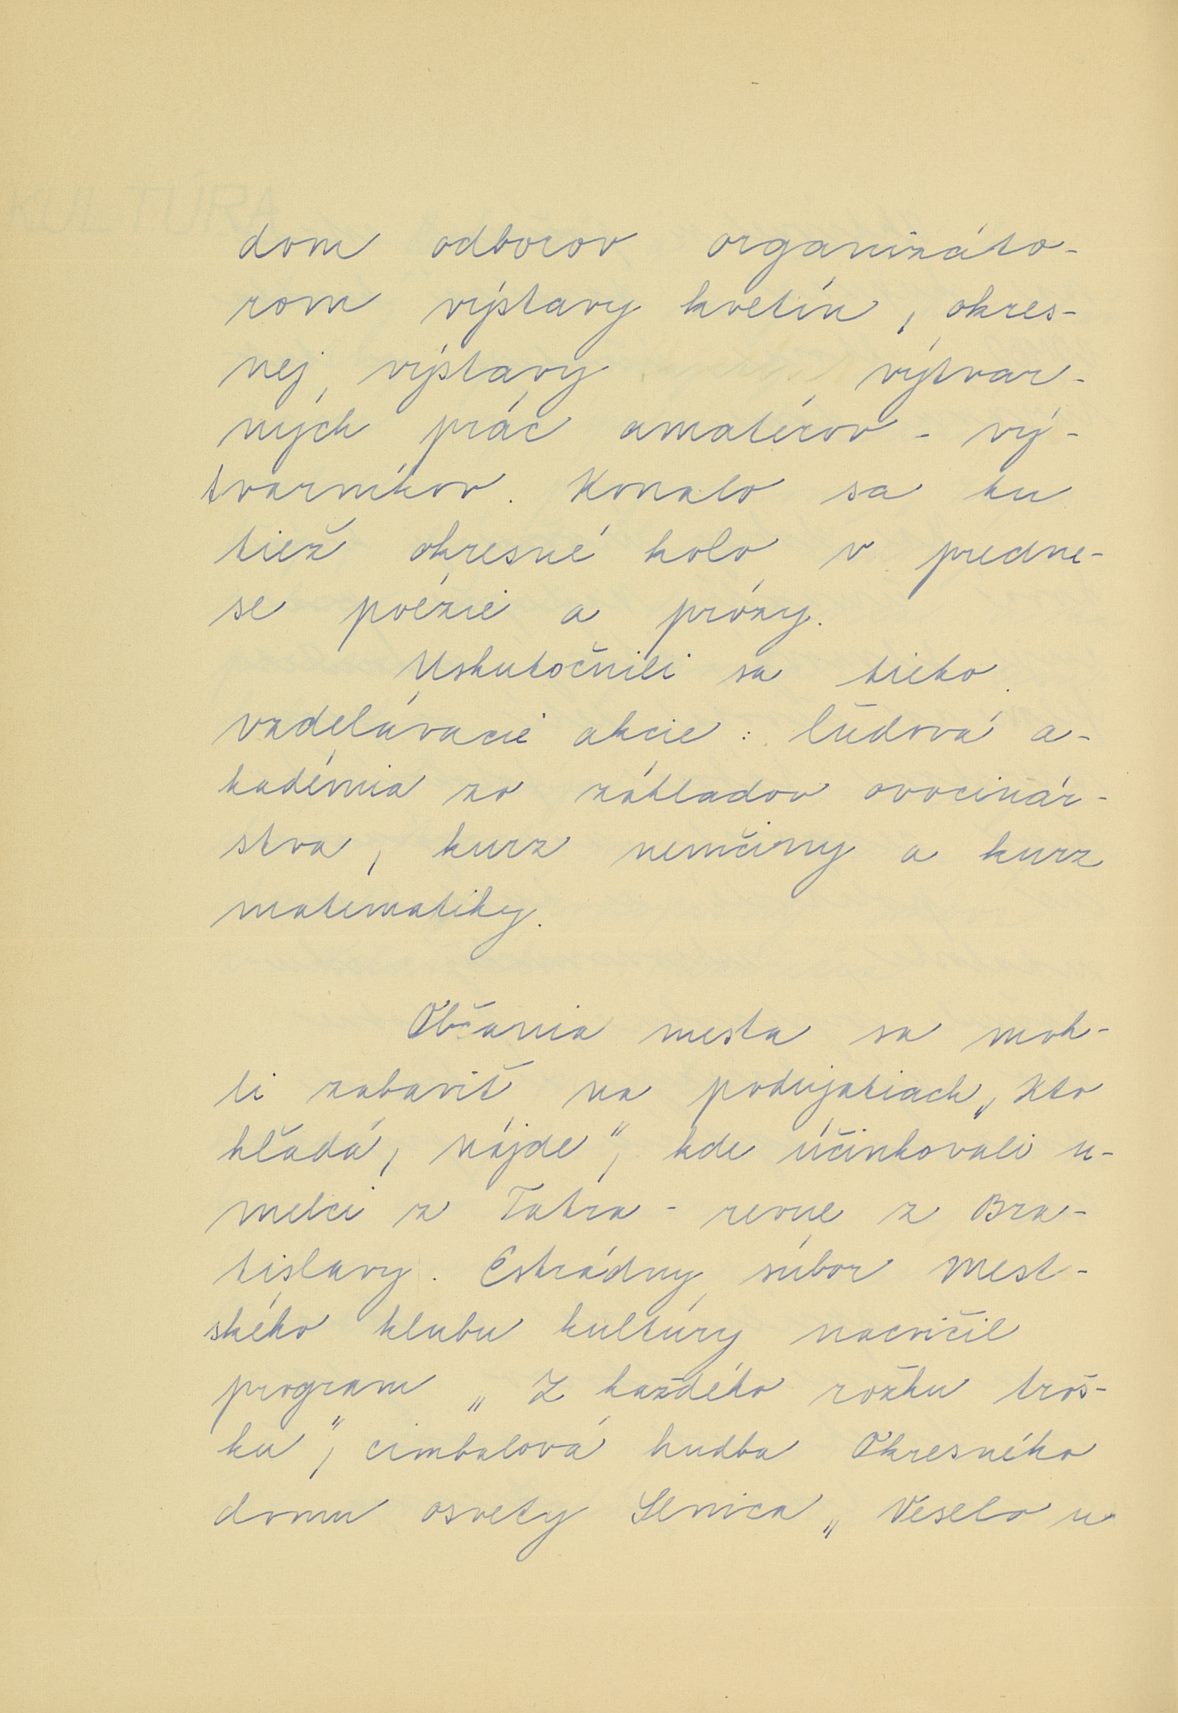 dom odborov organizáto-
rom výstavy kvetín, okres-
nej výstavy výtvar-
ných prác amatérov - vý-
tvarníkov. Konalo sa tu
tiež okresné kolo v predne-
se poézie a prózy.
Uskutočnili sa tieto
vzdelávacie akcie: ľudová a-
kadémia zo základov ovocinár-
stva, kurz nemčiny a kurz
matematiky.
Občania mesta sa moh-
li zabaviť na podujatiach „Kto
hľadá, nájde", kde účinkovali u-
melci z Tatra - revue z Bra-
tislavy. Estrádny súbor Mest-
ského klubu kultúry nacvičil
program „Z každého rožku troš-
ku", cimbalová hudba Okresného
domu osvety Senica „Veselo u